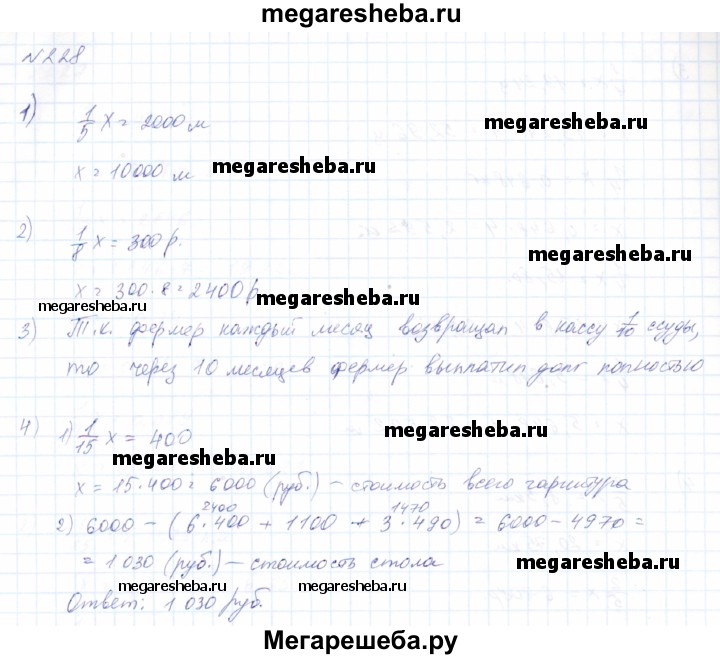 megaresheba.ru
№228
1)
1/5 x = 2000 м
megaresheba.ru
x = 10000 м
megaresheba.ru
2)
1/8 x = 300 р.
megaresheba.ru
x = 300 · 8 = 2400 р
megaresheba.ru
megaresheba.ru
3) Т.к. фермер каждый месяц возвращал в кассу 1/10 ссуды,
то через 10 месяцев фермер выплатил долг полностью
4) 1) 1/15 x = 400
megaresheba.ru
megaresheba.ru
x = 15·400 = 6000 (руб.) – стоимость всего гарнитура
2400 1470
2) 6000 – (6·400 + 1100 + 3·490) = 6000 – 4970 =
= 1 030 (руб.) – стоимость стола
megaresheba.ru
megaresheba.ru
megaresheba.ru
Ответ: 1 030 руб.
Мегарешеба.ру